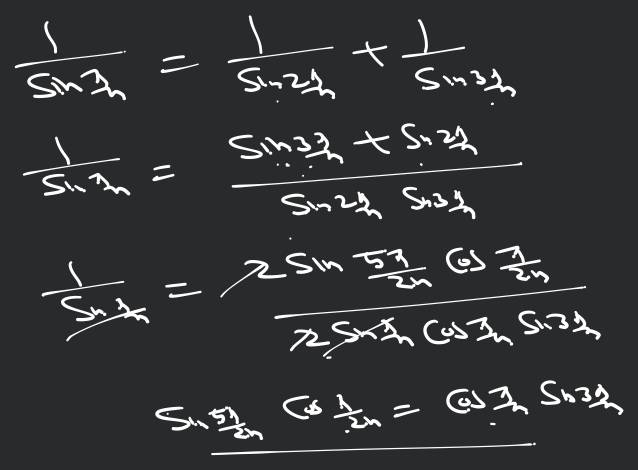 1/(Sin π/n) = 1/(Sin 2π/n) + 1/(Sin 3π/n)
1/(Sin π/n) = (Sin 3π/n + Sin 2π/n)/(Sin 2π/n Sin 3π/n)
1/(Sin π/n) = (2 Sin 5π/2n Cos π/2n)/(2 Sin π/n Cos π/n Sin 3π/n)
Sin 5π/2n Cos π/2n = Cos π/n Sin 3π/n